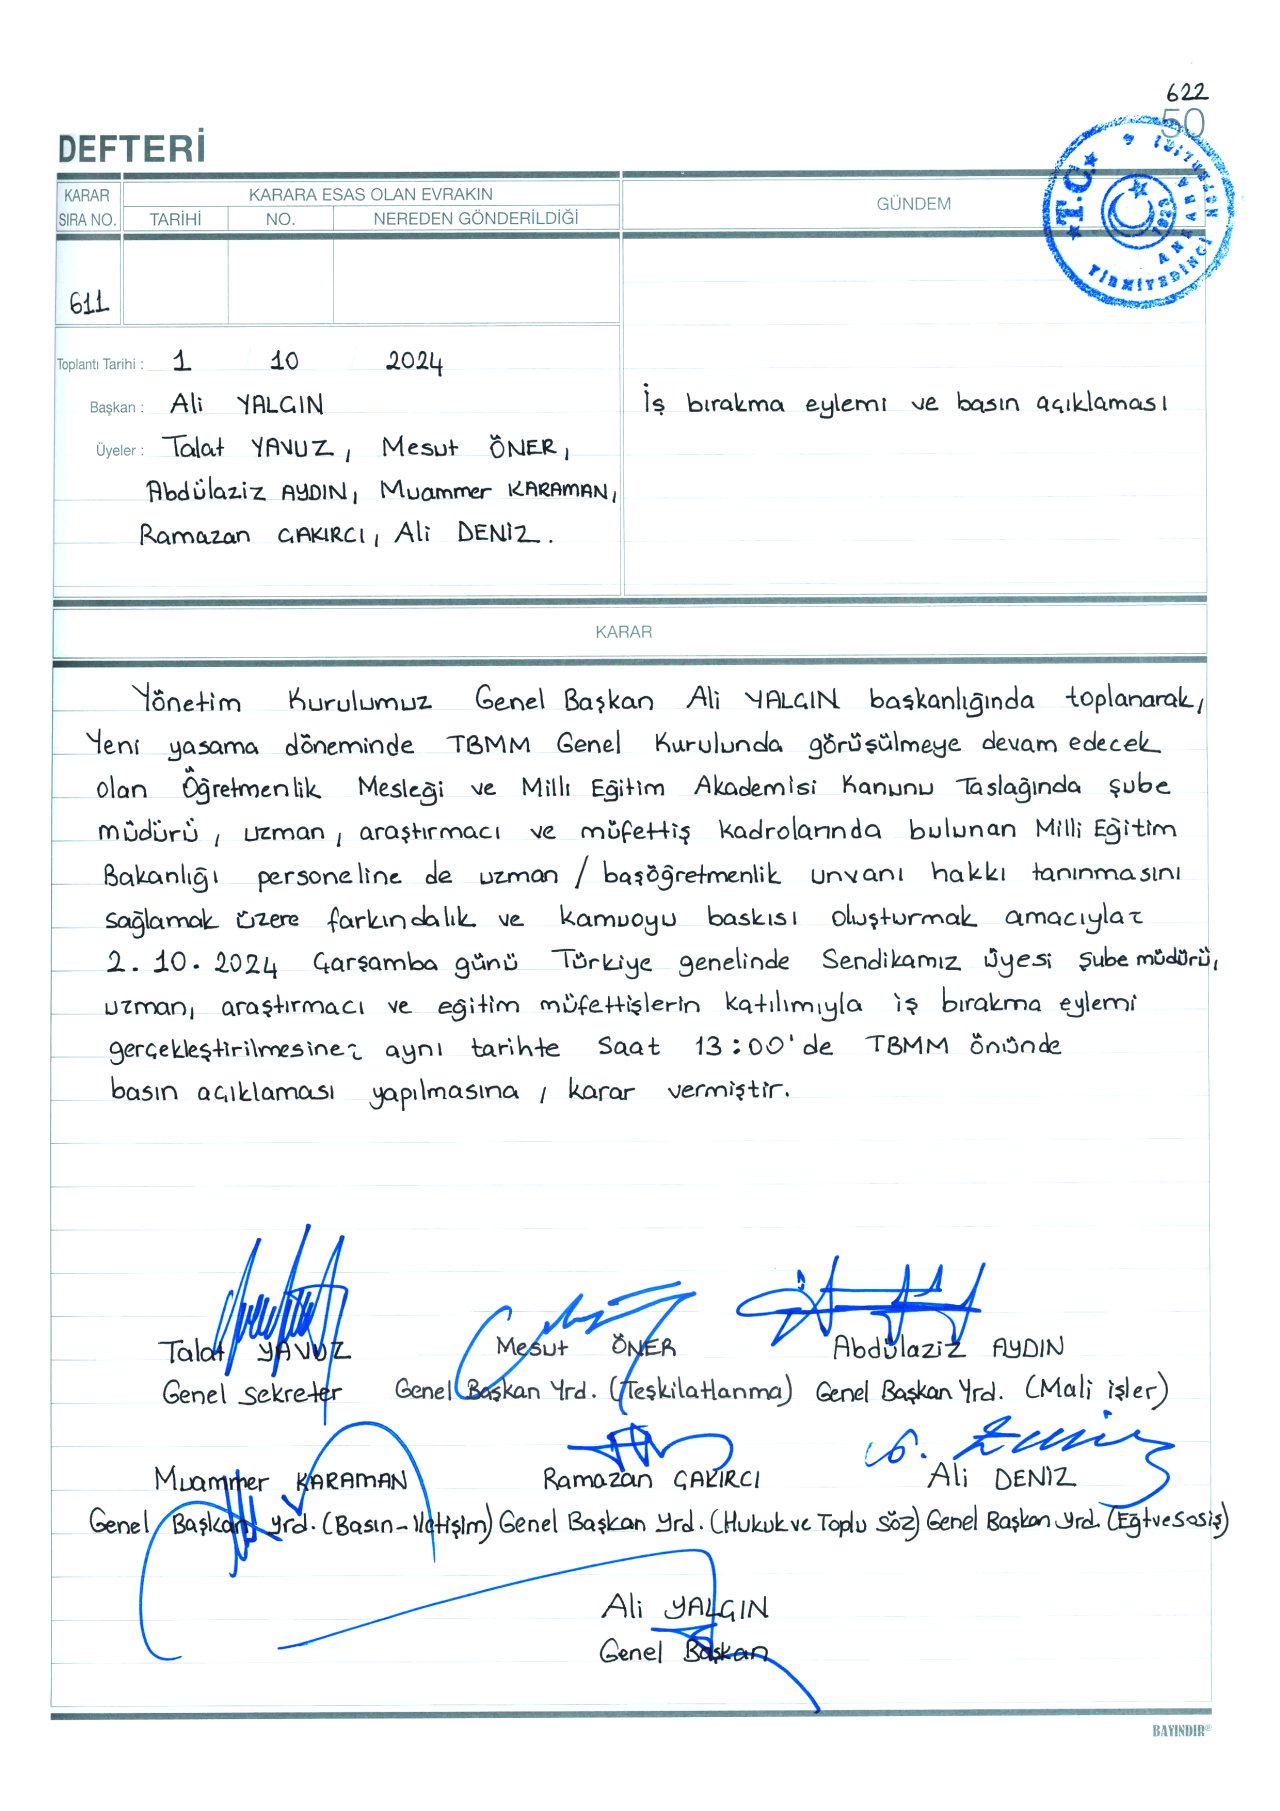 622
50
DEFTERİ
KARAR SIRA NO.
KARARA ESAS OLAN EVRAKIN
TARİHİ NO. NEREDEN GÖNDERİLDİĞİ
GÜNDEM
T.C. ANKARA 1923
611
Toplantı Tarihi : 1 10 2024
Başkan : Ali YALÇIN
İş bırakma eylemi ve basın açıklaması
Üyeler : Talat YAVUZ, Mesut ÖNER,
Abdülaziz AYDIN, Muammer KARAMAN,
Ramazan ÇAKIRCI, Ali DENİZ.
KARAR
Yönetim Kurulumuz Genel Başkan Ali YALÇIN başkanlığında toplanarak,
Yeni yasama döneminde TBMM Genel Kurulunda görüşülmeye devam edecek
olan Öğretmenlik Mesleği ve Milli Eğitim Akademisi Kanunu Taslağında şube
müdürü, uzman, araştırmacı ve müfettiş kadrolarında bulunan Milli Eğitim
Bakanlığı personeline de uzman / başöğretmenlik unvanı hakkı tanınmasını
sağlamak üzere farkındalık ve kamuoyu baskısı oluşturmak amacıyla;
2.10.2024 Çarşamba günü Türkiye genelinde Sendikamız üyesi şube müdürü,
uzman, araştırmacı ve eğitim müfettişlerin katılımıyla iş bırakma eylemi
gerçekleştirilmesine; aynı tarihte saat 13:00'de TBMM önünde
basın açıklaması yapılmasına, karar vermiştir.
Talat YAVUZ Mesut ÖNER Abdülaziz AYDIN
Genel Sekreter Genel Başkan Yrd. (Teşkilatlanma) Genel Başkan Yrd. (Mali işler)
Muammer KARAMAN Ramazan ÇAKIRCI Ali DENİZ
Genel Başkan Yrd. (Basın-İletişim) Genel Başkan Yrd. (Hukuk ve Toplu Söz) Genel Başkan Yrd. (Eğt ve Sosiş)
Ali YALÇIN
Genel Başkan
BAYINDIR®